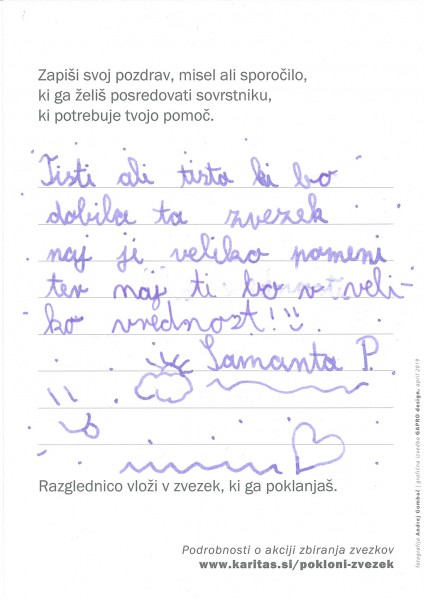 Zapiši svoj pozdrav, misel ali sporočilo,
ki ga želiš posredovati sovrstniku,
ki potrebuje tvojo pomoč.
Tisti ali tista ki bo
dobila ta zvezek
naj ji veliko pomeni
ter naj ti bo v veli-
ko vrednozt!
Samanta P.
Razglednico vloži v zvezek, ki ga poklanjaš.
Podrobnosti o akciji zbiranja zvezkov
www.karitas.si/pokloni-zvezek
fotografija Andrej Gombač | grafična izvedba GAPRO design, april 2019